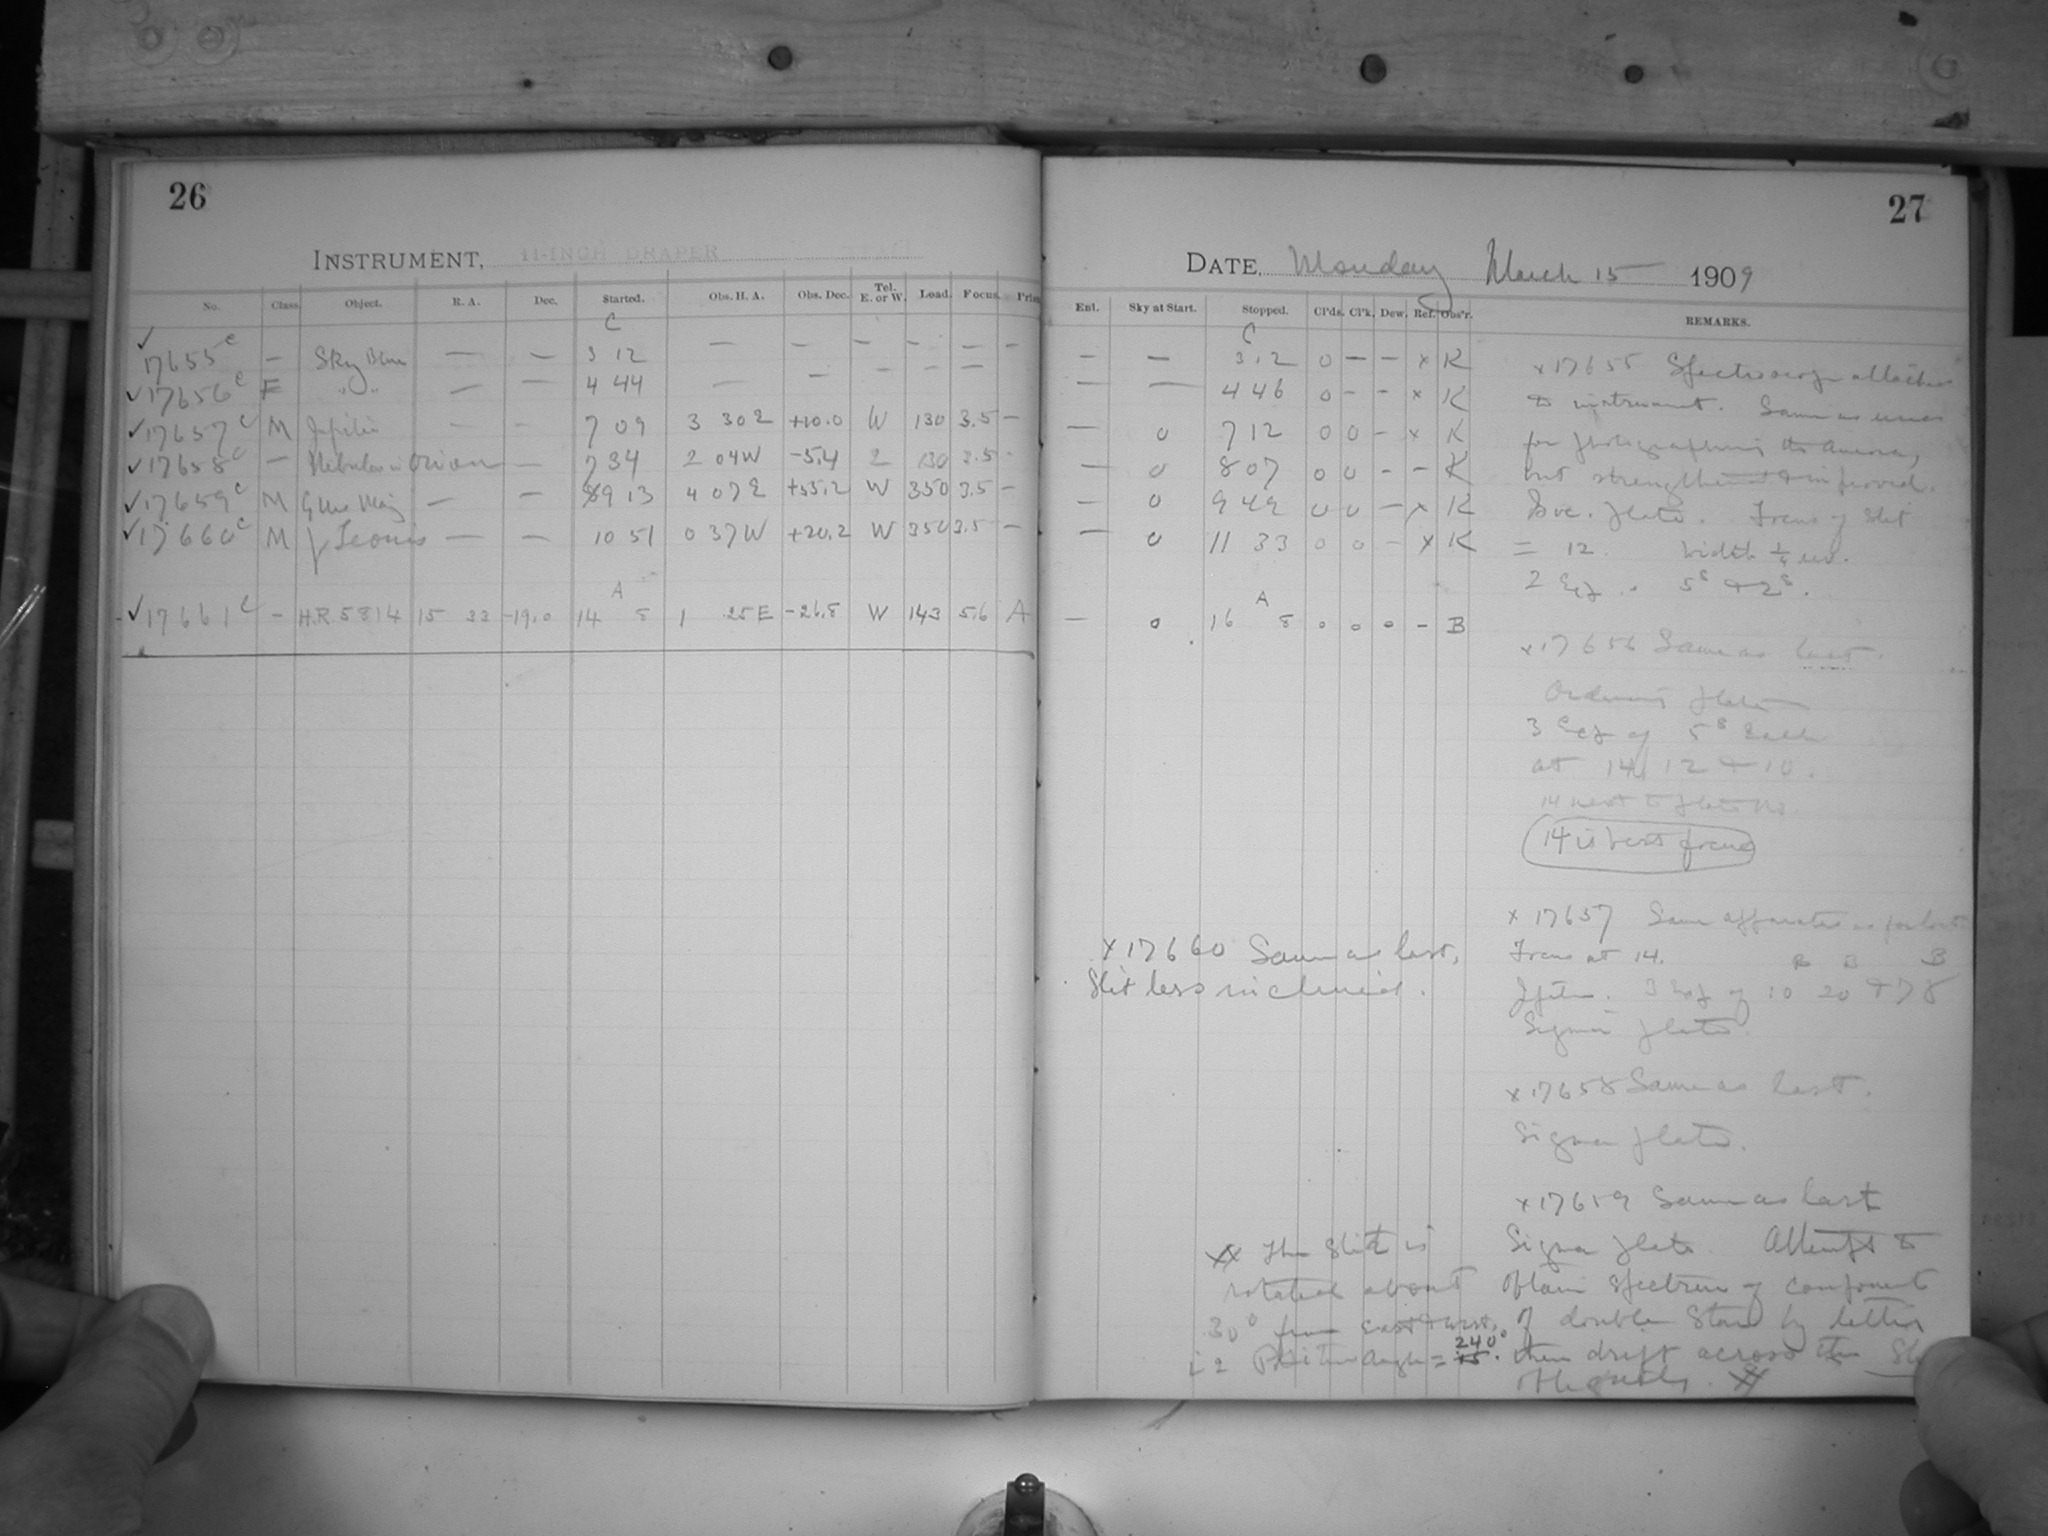 26
INSTRUMENT, 11-INCH DRAPER
No. Class. Object. R. A. Dec. Started. Obs. H. A. Obs. Dec. Tel. E. or W. Load. Focus.
C
✓ 17655 c — Sky Blue — — 3 12 — — — — — —
✓ 17656 c F " " — — 4 44 — — — — —
✓ 17657 c M Jupiter — — 7 09 3 30 E +10.0 W 130 3.5 —
✓ 17658 c — Nebula in Orion — 7 34 2 04 W -5.4 E 130 3.5 -
✓ 17659 c M — — 9 13 4 07 E +55.2 W 350 3.5 —
✓ 17660 c M γ Leonis — — 10 51 0 37 W +20.2 W 350 3.5 —
A
✓ 17661 c — H.R. 5814 15 33 -19.0 14 8 1 25 E -26.8 W 143 5.6 A
27
DATE, Monday March 15 1909
Ent. Sky at Start. Stopped. Cl'ds. Cl'k. Dew. Ref. Obs'r. REMARKS.
C
— — 3 12 0 — — x K
— — 4 46 0 - - x K
— 0 7 12 0 0 - x K
— 0 8 07 0 0 - - K
— 0 9 49 0 0 - x K
— 0 11 33 0 0 - x K
A
— 0 16 8 0 0 0 - B
x 17655 Spectroscope attached
to instrument. Same as used
for photographing the Aurora,
but strengthened & improved.
plate. Focus of Slit
= 12. Width
2 Exp. 5s & 2s.
x 17656 Same as last.
Ordinary plate
3 Exp of 5s Each
at 14, 12 & 10.
14 next to plate No.
14 is best focus
x 17657 Same apparatus as for last.
Focus at 14.
Jupiter. 3 Exp of 10 20 &
Sigma plate.
x 17658 Same as last.
Sigma plate.
x 17659 Same as last
Sigma plate. Attempt to
obtain spectrum of component
of double Star by letting
them drift across the
obliquely.
x 17660 Same as last,
Slit less inclined.
The Slit is
rotated about
30° from East & West,
Position angle = 240°